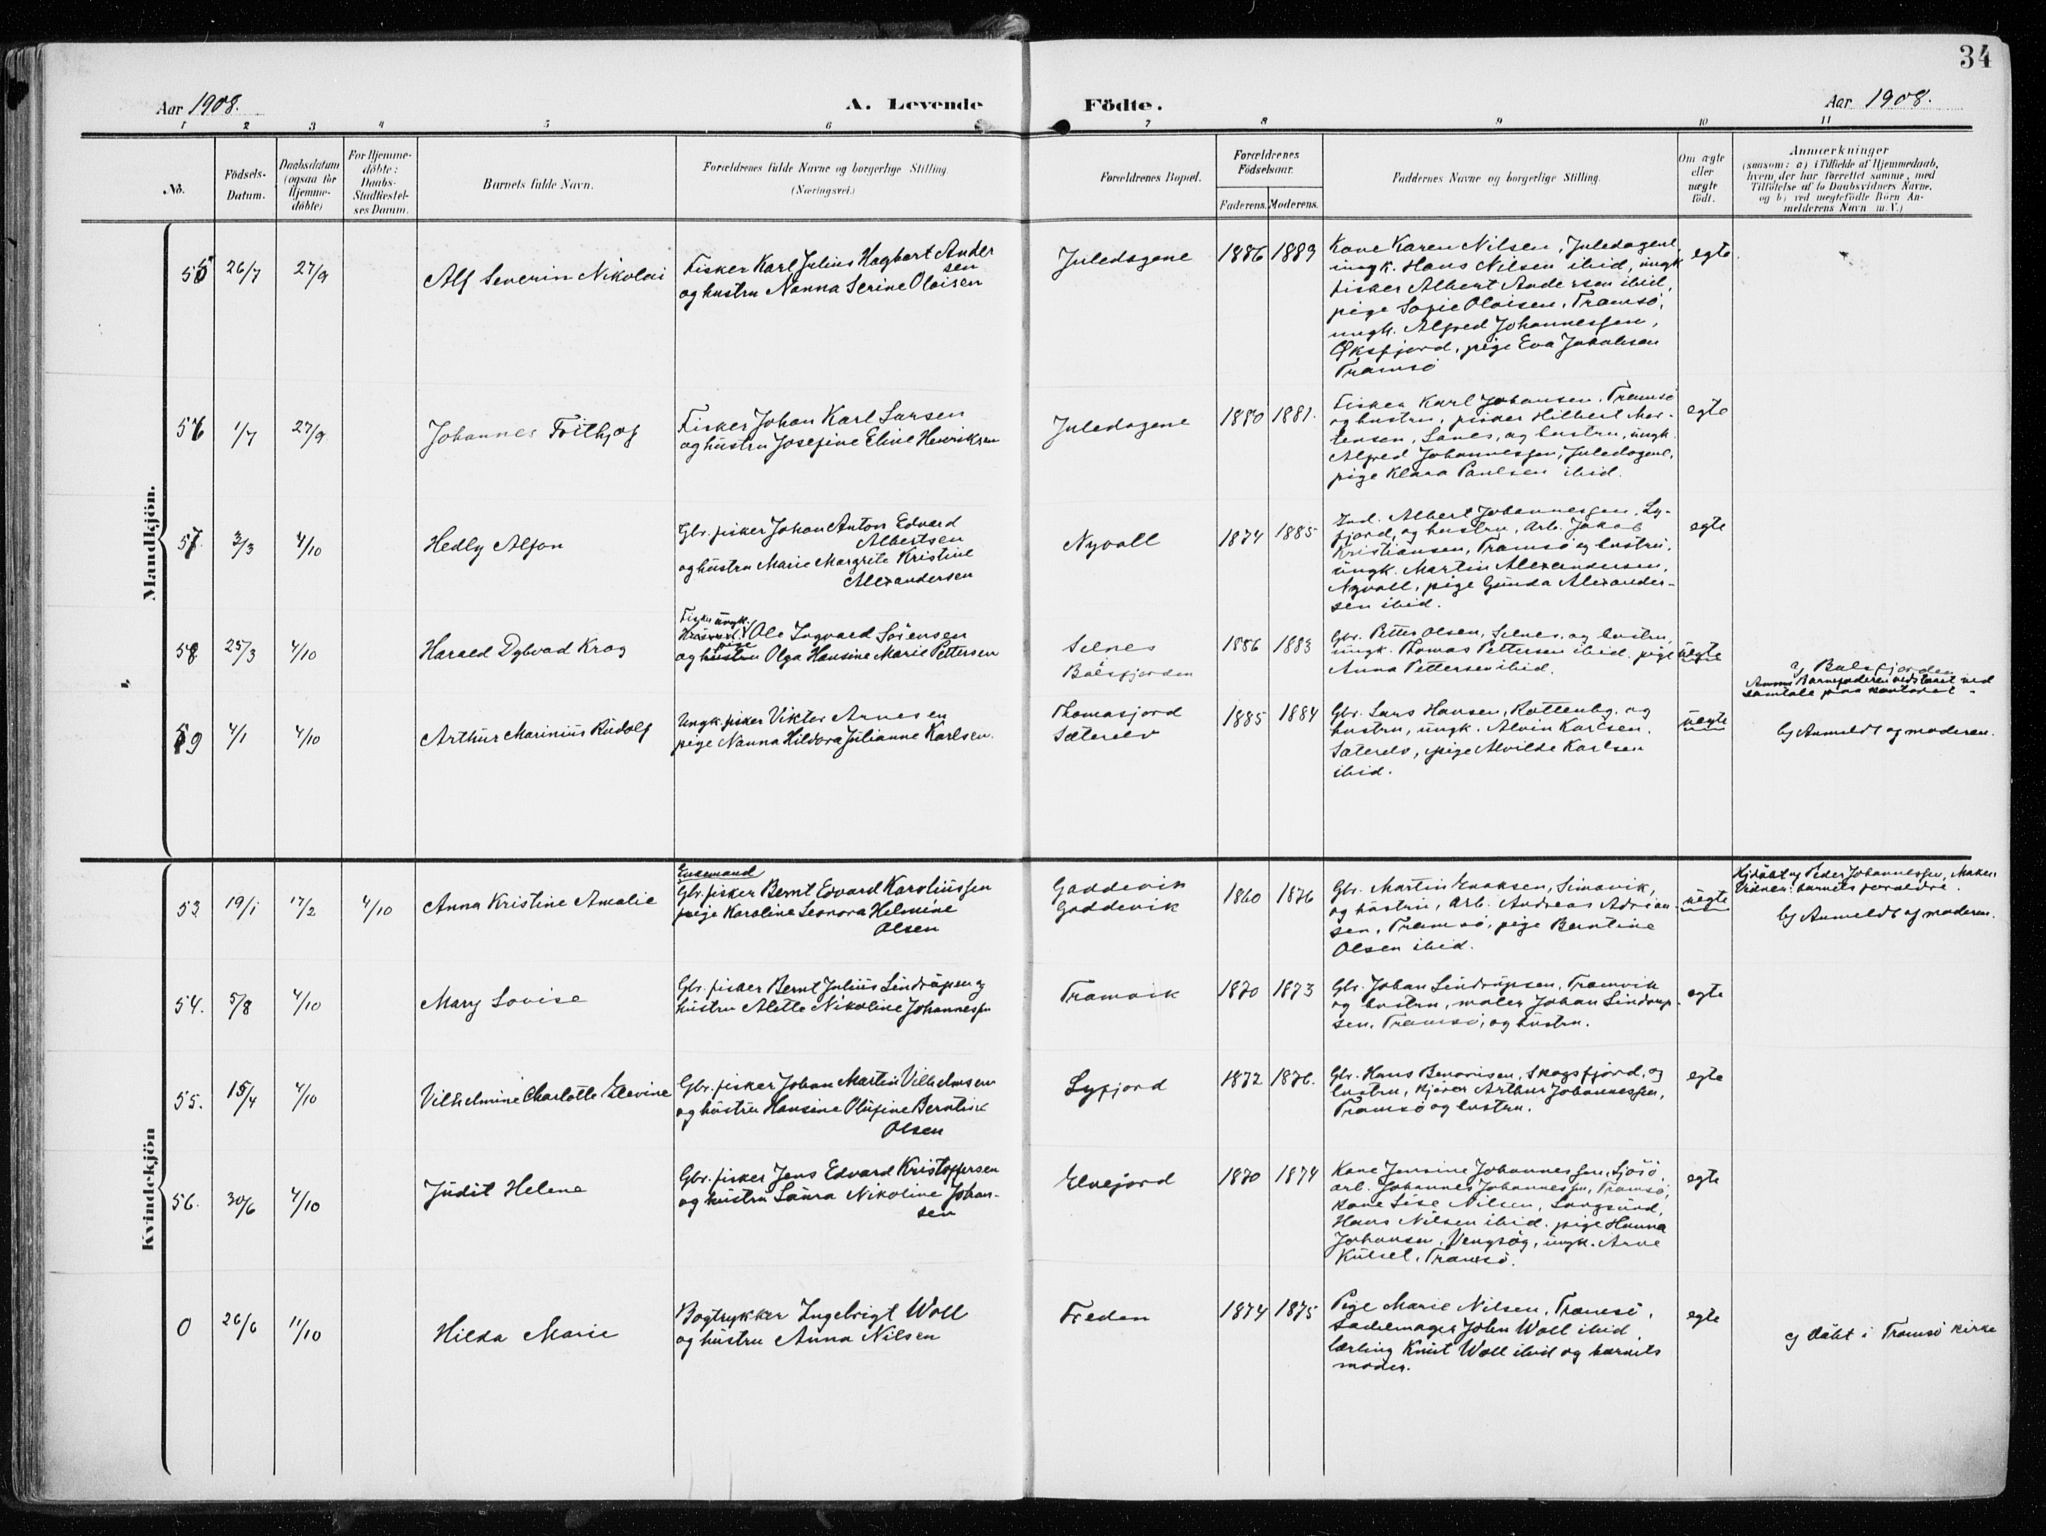 34
Aar 1908.
A. Levende Födte.
Aar 1908.
1 2 3 4 5 6 7 8 9 10 11
No.
Födsels-
Datum.
Daabsdatum
(ogsaa for
Hjemme-
döbte)
For Hjemme-
döbte:
Daabs-
Stadfæstel-
ses Datum.
Barnets fulde Navn.
Forældrenes fulde Navne og borgerlige Stilling.
(Næringsvei.)
Forældrenes Bopæl.
Forældrenes
Födselsaar.
Faderens. Moderens.
Faddernes Navne og borgerlige Stilling.
Om ægte
eller
uægte
födt.
Anmærkninger
(saasom: a) i Tilfælde af Hjemmedaab,
hvem der har forrettet samme, med
Tilföielse af to Daabsvidners Navne,
og b) ved uægtefödte Börn An-
melderens Navn m. V.)
Mandkjön.
55 26/7 27/9
Alf Severin Nikolai
Fisker Karl Julius Hagbart Ander
sen
og hustru Nanna Serine Olaisen
Juledagene
1886 1889
Kone Karen Nilsen, Juledagene,
ungk. Hans Nilsen ibid, ungk
fisker Albert Andersen ibid,
pige Sofie Olaisen, Tromsø,
ungk. Alfred Johannessen,
Øksfjord, pige Eva Jakobsen
Tromsø
egte
56 1/7 27/9
Johannes Frithjof
Fisker Johan Karl Larsen
og hustru Josefine Eline Henriksen
Juledagene
1880 1881.
Fisker Karl Johansen, Tromsø
og hustru, fisker Hilbert Mor-
tensen, Lanes, og hustru, ungk.
Alfred Johannessen, Juledagene,
pige Klara Paulsen ibid.
egte
57. 2/3 4/10
Hedly Alfon
Gbr. fisker Johan Anton Edvard
Albertsen
og hustru Marie Margrete Kristine
Alexandersen
Nyvoll
1874 1885
Ind. Albert Johannessen, Ly-
fjord, og hustru, Arb. Jakob
Kristiansen, Tromsø og hustru,
ungk. Martin Alexandersen,
Nyvoll, pige Gunda Alexander-
sen ibid.
egte
58 25/3 4/10
Harald Dybvad Krog
Fisker ungk.
Ole Ingvard Sørensen
pige
og hustru Olga Hansine Marie Pettersen
Selnes
Balsfjorden
1886 1883
Gbr. Petter Olsen, Selnes, og hustru,
ungk. Thomas Pettersen ibid. pige
Anna Pettersen ibid.
uegte
a) Balsfjorden
Anm. Barnefaderen vedstaaet ved
samtale paa kontoret.
59 4/1 4/10
Arthur Marinius Rudolf
Ungk. fisker Viktor Arnesen
pige Nanna Hildora Julianne Karlsen.
Thomasjord
Sæterelv
1885 1884
Gbr. Lars Hansen, Kattenbg. og
hustru, ungk. Alvin Karlsen.
Sæterelv, pige Alvilde Karlsen
ibid.
uegte
b) Anmeldt af moderen.
Kvindekjön
53. 19/1 17/2 4/10
Anna Kristine Amalie
Enkemand
Gbr. fisker Bernt Edvard Karoliussen
pige Karoline Leonora Helmine
Olsen
Gaddevik
Gaddevik
1860 1876
Gbr. Martin Isaksen, Simavik,
og hustru, arb. Andreas Adrian-
sen, Tromsø, pige Berntine
Olsen ibid.
uegte
Hjdøbt af Peder Johannessen, Maken
Vidner: barnets forældre.
b) Anmeldt af moderen.
54. 5/8 4/10
Mary Lovise
Gbr. fisker Bernt Julius Lindrupsen og
hustru Alette Nikoline Johannessen
Tromvik
1870 1873
Gbr. Johan Lindrupsen, Tromvik
og hustru, maler Johan Lindrup-
sen, Tromsø, og hustru.
egte
55. 15/4 4/10
Vilhelmine Charlotte Elevine
Gbr. fisker Johan Martin Vilhelmsen
og hustru Hansine Olufine Berntine
Olsen
Lyfjord
1872 1876.
Gbr. Hans Benonisen, Skogsfjord, og
hustru, kjører Arthur Johannessen,
Tromsø og hustru.
egte
56. 30/6 4/10
Judit Helene
Gbr. fisker Jens Edvard Kristoffersen
og hustru Laura Nikoline Johan-
sen
Elvejord
1870 1874
Kone Jensine Johannessen, Sjøsø
arb. Johannes Johannessen, Tromsø,
kone Lise Nilsen, Langsund,
Hans Nilsen ibid. pige Hanna
Johansen, Vengsøg, ungk. Arne
Kulset, Tromsø.
egte
0 26/6 11/10
Hilda Marie
Bogtrykker Ingebrigt Woll
og hustru Anna Nilsen
Freden
1874 1875
Pige Marie Nilsen, Tromsø,
sadelmager John Woll ibid,
lærling Knut Woll ibid og barnets
moder.
egte
c) døbt i Tromsø kirke